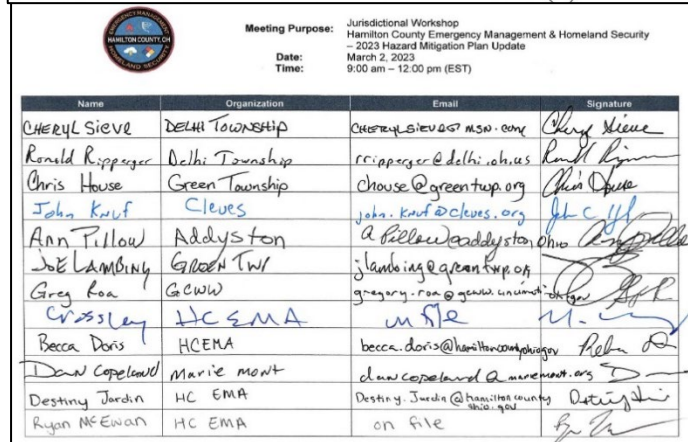 EMERGENCY MANAGEMENT
HAMILTON COUNTY, OH
HOMELAND SECURITY
Meeting Purpose: Jurisdictional Workshop
Hamilton County Emergency Management & Homeland Security
– 2023 Hazard Mitigation Plan Update
Date: March 2, 2023
Time: 9:00 am – 12:00 pm (EST)
Name Organization Email Signature
CHERYL Sieve DELHI TOWNSHIP Cheryl Sieve
Ronald Ripperger Delhi Township rripperger@delhi.oh.us
Chris House Green Township chouse@greentwp.org Chris House
John Knuf Cleves john.knuf@cleves.org
Ann Pillow Addyston apillow@addystonohio
JOE LAMBING GREEN TWP jlambing@greentwp.org
Greg Roa GCWW
Crossley HC EMA on file
Becca Doris HCEMA becca.doris@hamiltoncountyohio.gov
Dan Copeland Marie mont dancopeland@mariemont.org
Destiny Jardin HC EMA Destiny.Jardin@hamiltoncounty
ohio.gov
Ryan McEwan HC EMA on file